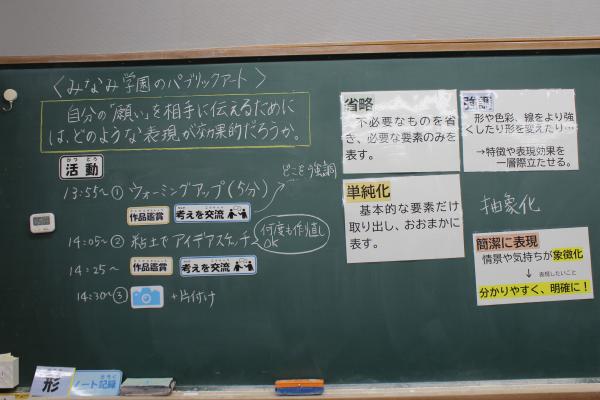 〈みなみ学園のパブリックアート〉
自分の「願い」を相手に伝えるために
は、どのような表現が効果的だろうか。
活動
かつどう
どこを強調
13:55～① ウォーミングアップ(5分)
作品鑑賞
考えを交流
14:05～② 粘土でアイデアスケッチ
何度も作り直し
OK
14:25～
作品鑑賞
考えを交流
14:30～③ +片付け
省略
不必要なものを省
き、必要な要素のみを
表す。
強調
形や色彩、線をより強
くしたり形を変えたり…
→特徴や表現効果を
一層際立たせる。
単純化
基本的な要素だけ
取り出し、おおまかに
表す。
抽象化
簡潔に表現
情景や気持ちが象徴化
↓ 表現したいこと
分かりやすく、明確に！
形
ノート記録